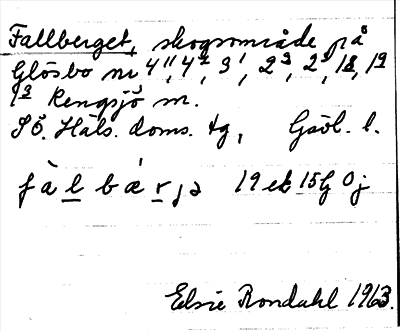 Fallberget, skogsområde på
Glösbo nr 4¹¹, 4², 3¹, 2³, 2⁵, 1⁸, 1⁹
i Rengsjö sn.
SÖ. Häls. doms. tg, Gävl. l.
fàlbǽrjə 19 ek 15G 0j
Elsie Rondahl 1963.